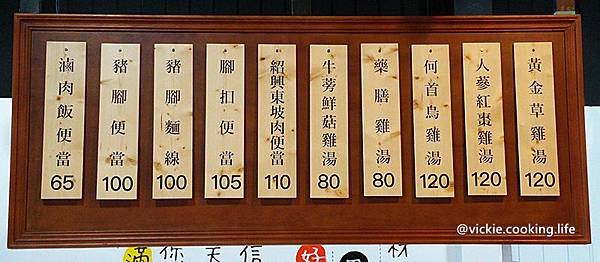 滷肉飯便當 65
豬腳便當 100
豬腳麵線 100
腳扣便當 105
紹興東坡肉便當 110
牛蒡鮮菇雞湯 80
藥膳雞湯 80
何首烏雞湯 120
人蔘紅棗雞湯 120
黃金草雞湯 120
@vickie.cooking.life
滿 你 天 信 好